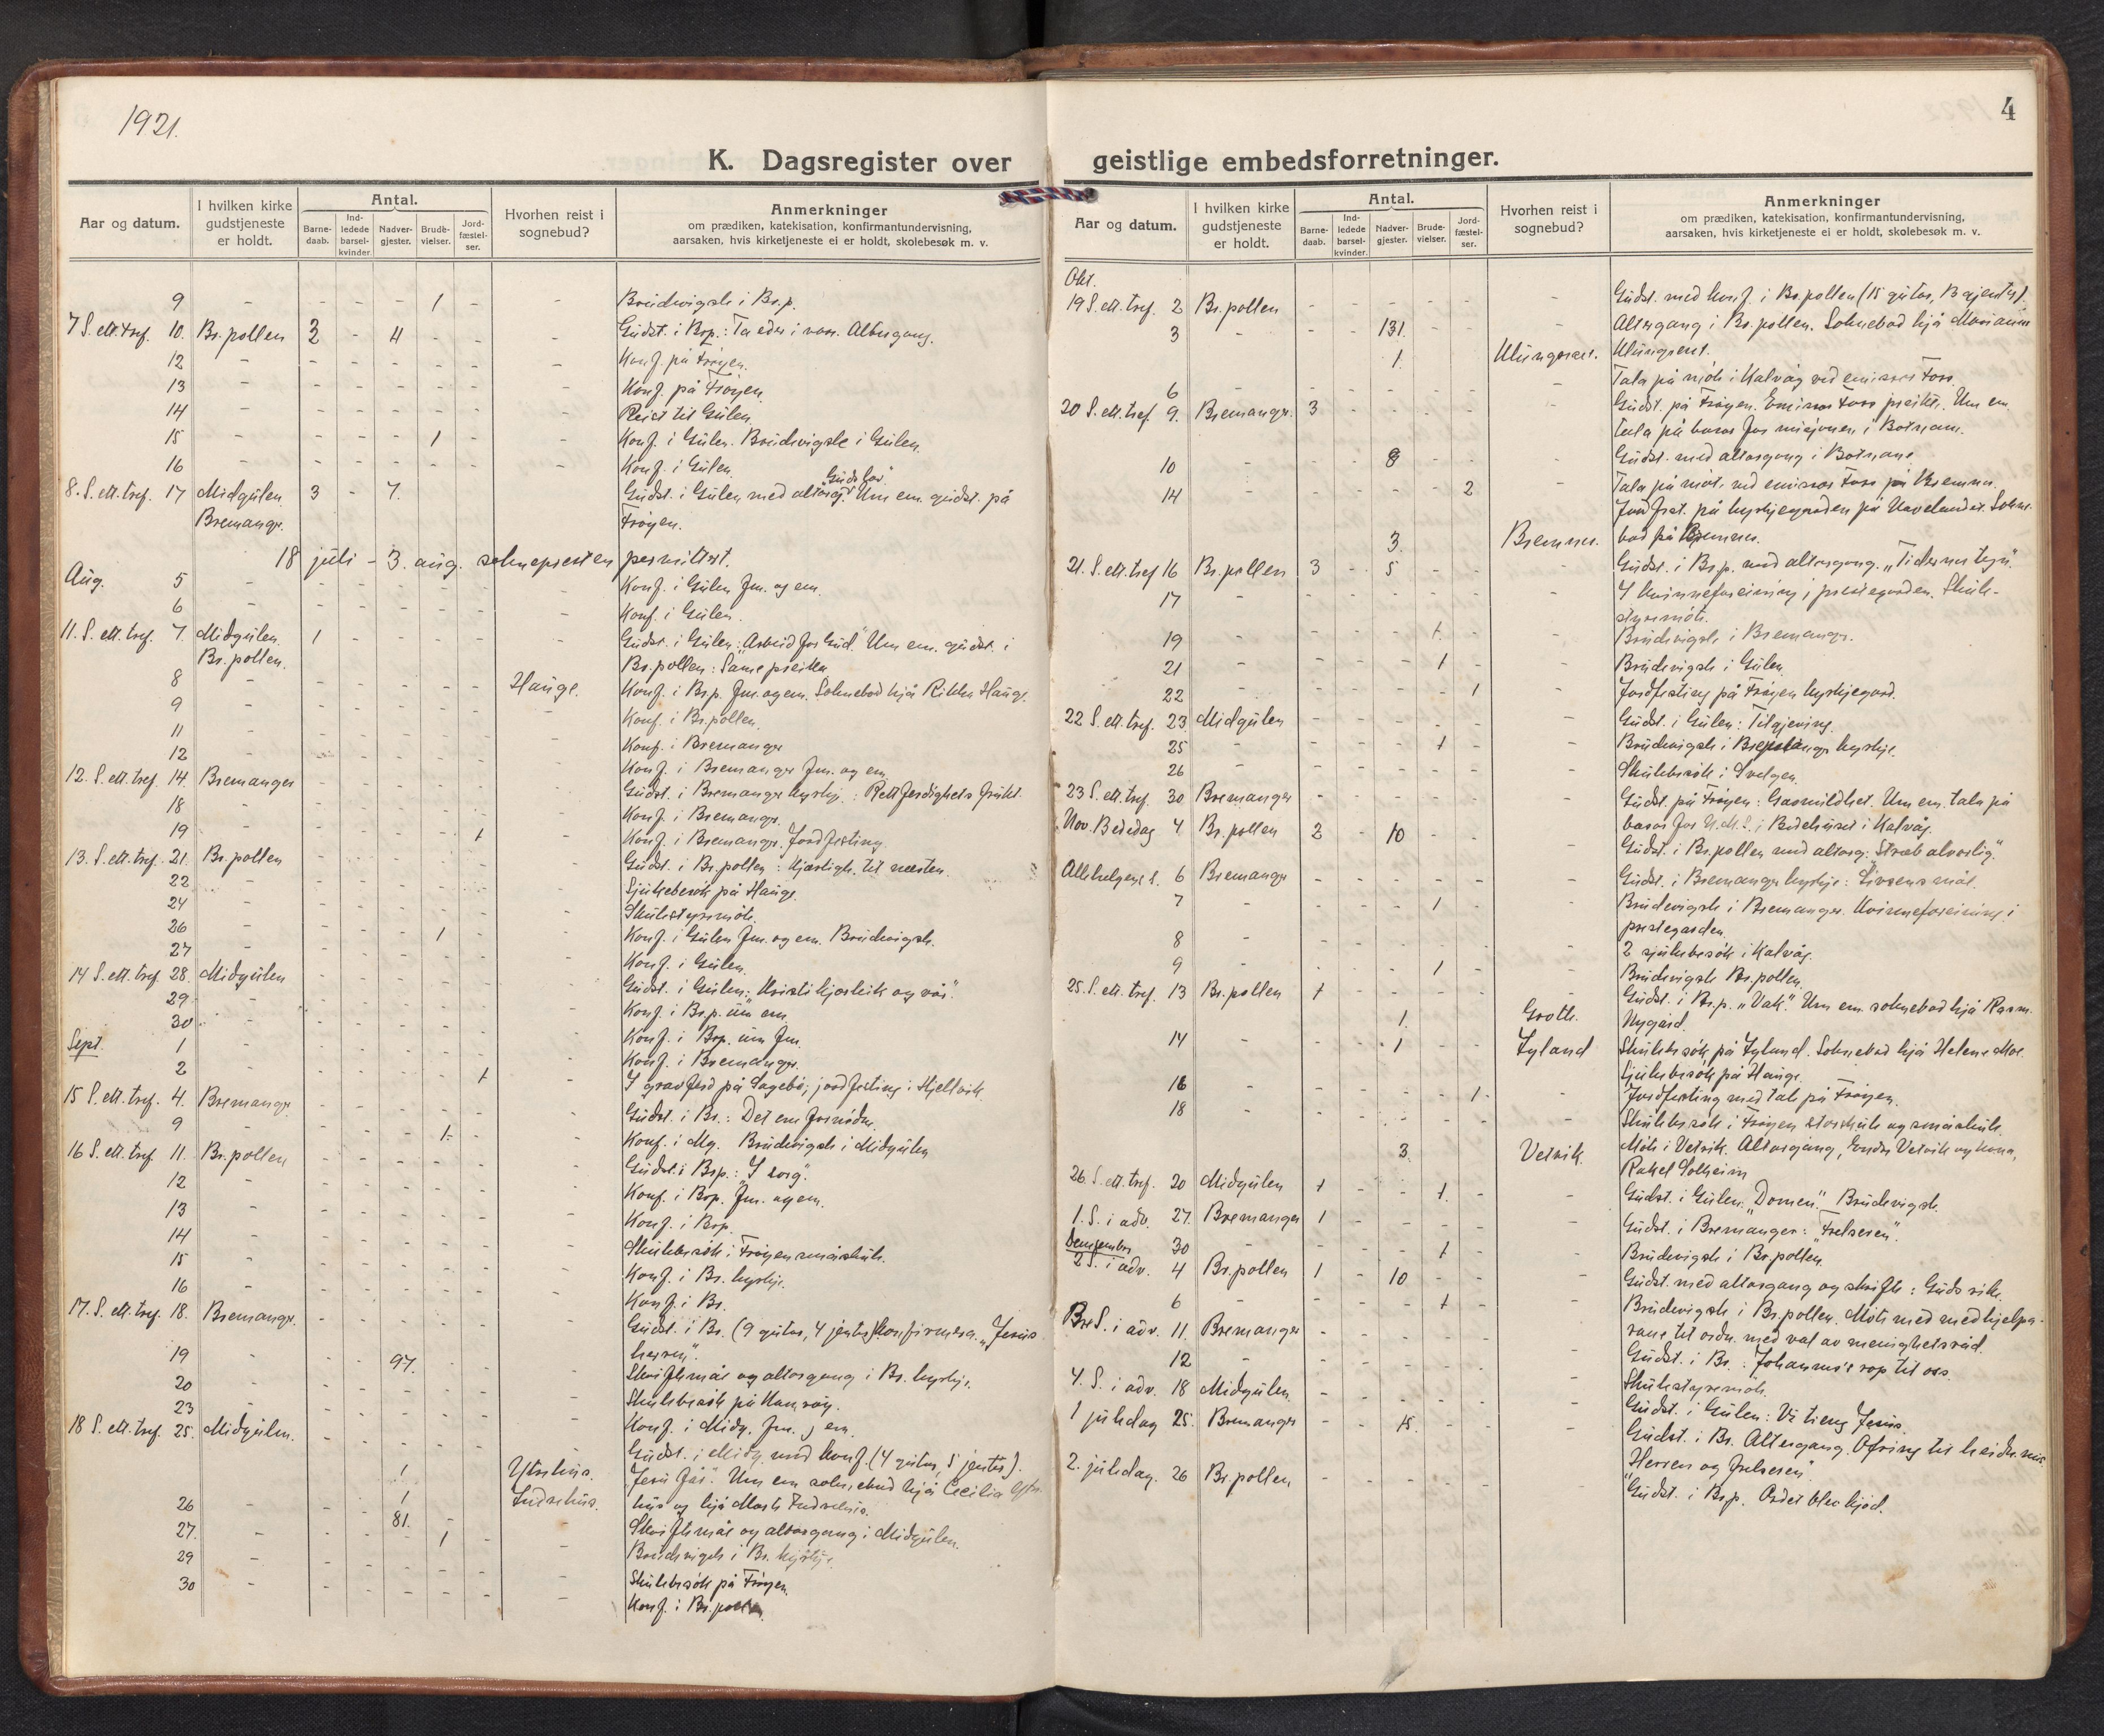 1921.
K. Dagsregister over
Aar og datum. I hvilken kirke gudstjeneste er holdt. Antal. Barne-daab. Ind-ledede barsel-kvinder. Nadver-gjester. Brude-vielser. Jord-fæstel-ser. Hvorhen reist i sognebud? Anmerkninger om prædiken, katekisation, konfirmantundervisning, aarsaken, hvis kirketjeneste ei er holdt, skolebesøk m. v.
9 - - - - 1 - - Brudevigsle i Br.p.
7 S. ett. tref. 10. Br.pollen 3 - 4 - - - Gudst. i Brp.: Ta eder i vare. Altergang.
12 - - - - - - - Konf. på Frøyen.
13 - - - - - - - Konf. på Frøyen.
14 - - - - - - - Reist til Gulen.
15 - - - - 1 - - Konf. i Gulen. Brudevigsle i Gulen.
16 - - - - - - - Konf. i Gulen
8. S. ett. tref. 17 Midgulen 3 - 7. Gudst. i Gulen med altarg. "Guds lov". Um em. gudst. på
Bremanger. Frøyen.
18 juli - 3. aug. soknepresten permittert.
Aug. 5 - - - - - - - Konf. i Gulen fm. og em.
6 - - - - - - - Konf. i Gulen.
11. S. ett. tref. 7. Midgulen 1 - - - - - Gudst. i Gulen: "Arbeid for Gud." Um em. gudst. i
Br.pollen. Br.pollen: Same preika
8 - - - - - - Hauge. Konf. i Br.p. fm. og em. Soknebod hjå Rikke Hauge.
9 - - - - - - - Konf. i Br.pollen.
11 - - - - - - - Konf. i Bremanger
12 - - - - - - - Konf. i Bremanger fm. og em.
12. S. ett. tref. 14. Bremanger - - - - - - Gudst. i Bremanger kyrkje: Rettferdighets frukt.
18 - - - - - - - Konf. i Bremanger.
19 - - - - - 1 - Konf. i Bremanger. Jordfesting.
13. S. ett. tref. 21. Br.pollen - - - - - - Gudst. i Br.pollen: Kjærligh. til næsten.
22 - - - - - - - Sjukebesøk på Hauge.
24 - - - - - - - Skulestyremøte.
26 - - - - 1 - - Konf. i Gulen fm. og em. Brudevigsle.
27 - - - - - - - Konf. i Gulen.
14 S. ett. tref. 28. Midgulen - - - - - - Gudst. i Gulen: "Kristi kjærleik og vår".
29 - - - - - - - Konf. i Br.p. um em.
30 - - - - - - - Konf. i Brp. um fm.
Sept. 1 - - - - - - - Konf. i Bremanger.
2 - - - - - 1 - I gravferd på Sagebø; jordfesting i Hjellvik.
15 S. ett. tref. 4. Bremanger - - - - - - Gudst. i Br.: Det ene fornødne.
9 - - - - 1. - - Konf. i Mg. Brudevigsle i Midgulen
16 S. ett. tref. 11. Br.pollen - - - - - - Gudst. i Brp.: "I sorg".
12 - - - - - - - Konf. i Brp. fm. og em.
13 - - - - - - - Konf. i Brp.
14 - - - - - - - Skulebesøk i Frøyen småskule.
15 - - - - - - - Konf. i Br. kyrkje.
16 - - - - - - - Konf. i Br.
17. S. ett. tref. 18. Bremanger. - - - - - - Gudst. i Br. (9 gutar, 4 jentor) konfirmera. "Jesus
herren".
19 - - - 97. - - - Skriftmål og altargang i Br. kyrkje.
20 - - - - - - - Skulebesøk på
23 - - - - - - - Konf. i Midg. fm. og em.
18 S. ett. tref. 25. Midgulen. - - - - - - Gudst. i Midg. med konf. (4 gutar, 5 jentor).
1 Ytrehus. "Jesu får". Um em soknebud hjå Cecilia Ytre-
1 Indrehus. hus og hjå Marte Indrehus.
26 - - - 81. - - - Skriftmål og altargang i Midgulen.
27. - - - - 1 - - Brudevigsle i Br. kyrkje.
29 - - - - - - - Skulebesøk på Frøyen.
30 - - - - - - - Konf. i Br.pollen.
4
geistlige embedsforretninger.
Aar og datum. I hvilken kirke gudstjeneste er holdt. Antal. Barne-daab. Ind-ledede barsel-kvinder. Nadver-gjester. Brude-vielser. Jord-fæstel-ser. Hvorhen reist i sognebud? Anmerkninger om prædiken, katekisation, konfirmantundervisning, aarsaken, hvis kirketjeneste ei er holdt, skolebesøk m. v.
Okt.
19 S. ett. tref. 2 Br.pollen - - - - - - Gudst. med konf. i Br.pollen (15 gutar, 13 gjentor).
3 - - - 131. - - - Altergang i Br.pollen. Soknebod hjå Marianne
1. Klungreset. Klungreset.
6 - - - - - - - Tala på møte i Kalvåg ved emissær Foss.
20 S. ett. tref. 9. Bremanger. 3 - - - - - Gudst. på Frøyen. Emissær Foss preika. Um em.
tala på basar for misjonen i Botnane.
10 - - - 8 - - - Gudst. med altargang i Botnane
14 - - - - - 2 - Tala på møte ved emissær Foss på Bremnes.
Jordfest. på kyrkjegarden på Hovelandet. Sokne-
3. Bremnes. bod på Bremnes.
21. S. ett. tref 16 Br.pollen 3 - 5 - - - Gudst. i Br.p. med altargang. "Tidernes tegn".
17 - - - - - - - I kvinneforeining i prestegarden. Skule-
styremøte.
19 - - - - 1. - - Brudevigsle i Bremanger.
21 - - - - 1 - - Brudevigsle i Gulen
22 - - - - - 1 - Jordfesting på Frøyen kyrkjegard.
22 S. ett. tref. 23 Midgulen - - - - - - Gudst. i Gulen: Tilgjeving.
25 - - - - 1 - - Brudevigsle i Bremanger kyrkje.
26 - - - - - - - Skulebesøk i Svelgen.
23 S. ett. tref. 30 Bremanger - - - - - - Gudst. på Frøyen: Gavmildhet. Um em. tala på
basar for N.M.S. i Bedehuset i Kalvåg.
Nov. Bededag 4. Br.pollen 2 - 10 - - - Gudst. i Br.pollen med altarg: "Stræb alvorlig".
Allehelgens s. 6 Bremanger - - - - - - Gudst. i Bremanger kyrkje: Livsens mål.
7 - - - - 1 - - Brudevigsle i Bremanger. Kvinneforeining i
prestegarden.
8 - - - - - - - 2 sjukebesøk i Kalvåg.
9 - - - - 1 - - Brudevigsle Br.pollen.
25. S. ett. tref. 13 Br.pollen 1 - - - - - Gudst. i Br.p. "Vak". Um em. soknebod hjå Rasm.
1. Grotle. Nygård.
14 - - - 1 - - Igland Skulebesøk på Igland. Soknebod hjå Helene Moe.
Sjukebesøk på Hauge.
16 - - - - - 1. - Jordfesting med tale på Frøyen.
18 - - - - - - - Skulebesøk i Frøyen storskule og småskule.
3. Vetvik. Møte i Vetvik. Altargang, Endre Vetvik og kona,
Rakel Solheim
26. S. ett. tref. 20 Midgulen 1 - - 1. - - Gudst. i Gulen: "Domen". Brudevigsle.
1. S. i adv. 27. Bremanger 1 - - - - - Gudst. i Bremanger: "Frelseren".
30 - - - - 1 - - Brudevigsle i Br.pollen.
Desember
2 S. i adv. 4 Br.pollen 1 - 10 - - - Gudst. med altargang og skrifte: Guds rike.
6 - - - - 1 - - Brudevigsle i Br.pollen. Møte med medhjelpa-
rane til ordn. med val av menighetsråd.
3 S. i adv. 11. Bremanger - - - - - - Gudst. i Br.: Johannes's rop til oss.
12 - - - - - - - Skulestyremøte.
4. S. i adv. 18 Midgulen. - - - - - - Gudst. i Gulen: Vi treng Jesus.
1 juledag 25. Bremanger - - 15. - - - Gudst. i Br. Altergang. Ofring til heidn.mis.
"Herren og frelseren".
2. juledag. 26 Br.pollen - - - - - - Gudst. i Brp. Ordet blev kjød.